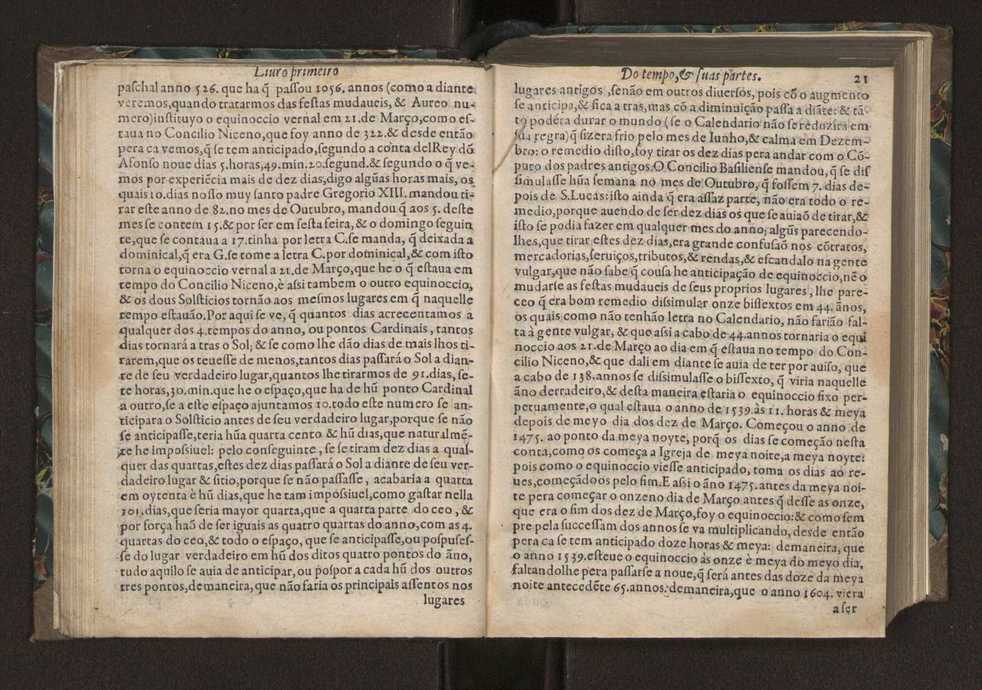 Liuro primeiro
paschal anno 526. que ha q̃ passou 1056. annos (como a diante
veremos, quando tratarmos das festas mudaueis, & Aureo nu-
mero) instituyo o equinoccio vernal em 21. de Março, como es-
taua no Concilio Niceno, que foy anno de 322. & desde então
pera ca vemos, q̃ se tem anticipado, segundo a conta del Rey dõ
Afonso noue dias 5. horas, 49. min. 20. segund. & segundo o q̃ ve-
mos por experiẽcia mais de dez dias, digo algũas horas mais, os
quais 10. dias nosso muy santo padre Gregorio XIII. mandou ti-
rar este anno de 82. no mes de Outubro, mandou q̃ aos 5. deste
mes se contem 15. & por ser em sesta feira, & o domingo seguin
te, que se contaua a 17. tinha por letra C. se manda, q̃ deixada a
dominical, q̃ era G. se tome a letra C. por dominical, & com isto
torna o equinoccio vernal a 21. de Março, que he o q̃ estaua em
tempo do Concilio Niceno, è assi tambem o outro equinoccio,
& os dous Solsticios tornão aos mesmos lugares em q̃ naquelle
tempo estauão. Por aqui se ve, q̃ quantos dias acrecentamos a
qualquer dos 4. tempos do anno, ou pontos Cardinais, tantos
dias tornará a tras o Sol, & se como lhe dão dias de mais lhos ti-
rarem, que os teuesse de menos, tantos dias passará o Sol a dian-
te de seu verdadeiro lugar, quantos lhe tirarmos de 91. dias, se-
te horas, 30. min. que he o espaço, que ha de hũ ponto Cardinal
a outro, se a este espaço ajuntamos 10. todo este numero se an-
ticipara o Solsticio antes de seu verdadeiro lugar, porque se não
se anticipasse, teria hũa quarta cento & hũ dias, que naturalmẽ-
te he impossiuel: pelo conseguinte, se se tiram dez dias a qual-
quer das quartas, estes dez dias passará o Sol a diante de seu ver-
dadeiro lugar & sitio, porque se não passasse, acabaria a quarta
em oytenta è hũ dias, que he tam impossiuel, como gastar nella
101. dias, que seria mayor quarta, que a quarta parte do ceo, &
por força haõ de ser iguais as quatro quartas do anno, com as 4.
quartas do ceo, & todo o espaço, que se anticipasse, ou pospuses-
se do lugar verdadeiro em hũ dos ditos quatro pontos do ãno,
tudo aquilo se auia de anticipar, ou pospor a cada hũ dos outros
tres pontos, de maneira, que não faria os principais assentos nos
lugares
Do tempo, & suas partes. 21
lugares antigos, senão em outros diuersos, pois cõ o augmento
se anticipa, & fica a tras, mas cõ a diminuição passa a diãte: & tã-
to podéra durar o mundo (se o Calendario não se reduzira em
sua regra) q̃ fizera frio pelo mes de Iunho, & calma em Dezem-
bro: o remedio disto, foy tirar os dez dias pera andar com o Cõ-
puto dos padres antigos. O Concilio Basiliense mandou, q̃ se dis
simulasse hũa semana no mes de Outubro, q̃ fossem 7. dias de-
pois de S. Lucas: isto ainda q̃ era assaz parte, não era todo o re-
medio, porque auendo de ser dez dias os que se auiaõ de tirar, &
isto se podia fazer em qualquer mes do anno, algũs parecendo-
lhes, que tirar estes dez dias, era grande confusaõ nos cõtratos,
mercadorias, seruiços, tributos, & rendas, & escandalo na gente
vulgar, que não sabe q̃ cousa he anticipação de equinoccio, nẽ o
mudarse as festas mudaueis de seus proprios lugares, lhe pare-
ceo q̃ era bom remedio dissimular onze bissextos em 44. ãnos,
os quais como não tenhão letra no Calendario, não farião fal-
ta à gente vulgar, & que assi a cabo de 44. annos tornaria o equi
noccio aos 21. de Março ao dia em q̃ estaua no tempo do Con-
cilio Niceno, & que dali em diante se auia de ter por auiso, que
a cabo de 138. annos se dissimulasse o bissexto, q̃ viria naquelle
ãno derradeiro, & desta maneira estaria o equinoccio fixo per-
petuamente, o qual estaua o anno de 1539. às 11. horas & meya
depois de meyo dia dos dez de Março. Começou o anno de
1475. ao ponto da meya noyte, porq̃ os dias se começão nesta
conta, como os começa a Igreja de meya noite, a meya noyte:
pois como o equinoccio viesse anticipado, toma os dias ao re-
ues, começãdo os pelo fim. E assi o ãno 1475. antes da meya noi-
te pera começar o onzeno dia de Março antes q̃ desse as onze,
que era o fim dos dez de Março, foy o equinoccio: & como sem
pre pela successam dos annos se va multiplicando, desde então
pera ca se tem anticipado doze horas & meya: demaneira, que
o anno 1539. esteue o equinoccio às onze è meya do meyo dia,
faltandolhe pera passarse a noue, q̃ será antes das doze da meya
noite antecedẽte 65. annos: demaneira, que o anno 1604. viera
a ser